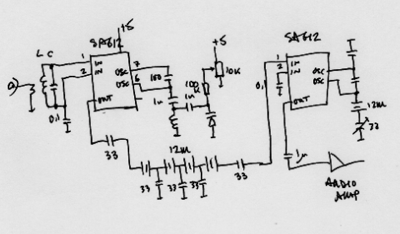 +5
SA612
L C
1
2
IN
IN
OSC
OSC
7
6
OUT
a)
0,1
100
1n
1n
100
K
+5
10K
33
12M
33
33
33
33
SA612
1
2
IN
IN
OSC
OSC
OUT
0,1
12M
33
1µ
AUDIO
AMP